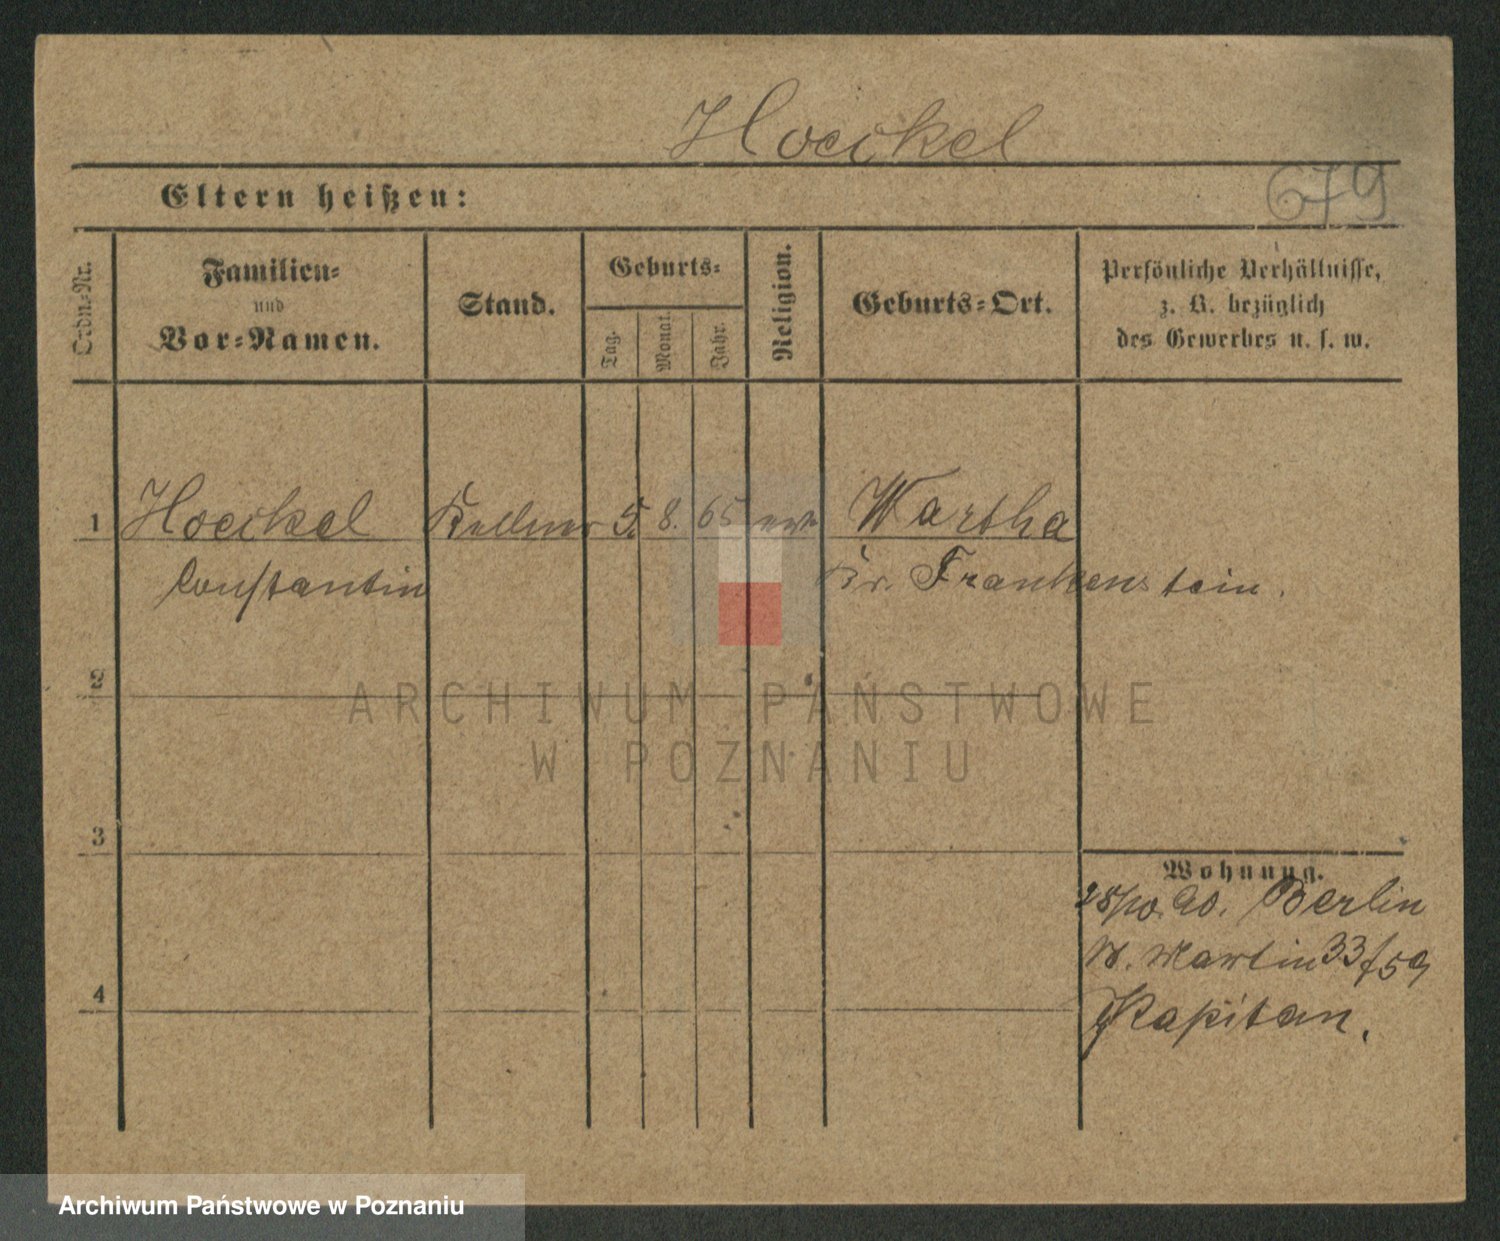 Hoeckel
Eltern heißen:
679
Ordn.-Nr.
Familien-
und
Vor-Namen.
Stand.
Geburts-
Tag.
Monat.
Jahr.
Religion.
Geburts-Ort.
Persönliche Verhältnisse,
z. B. bezüglich
des Gewerbes u. s. w.
1 Hoeckel Kellner 5. 8. 65 Wartha
Constantin Kr. Frankenstein.
2
ARCHIWUM PAŃSTWOWE
W POZNANIU
3
Wohnung.
28/10. 90. Berlin
St. Martin 33
Kapitan.
4
Archiwum Państwowe w Poznaniu